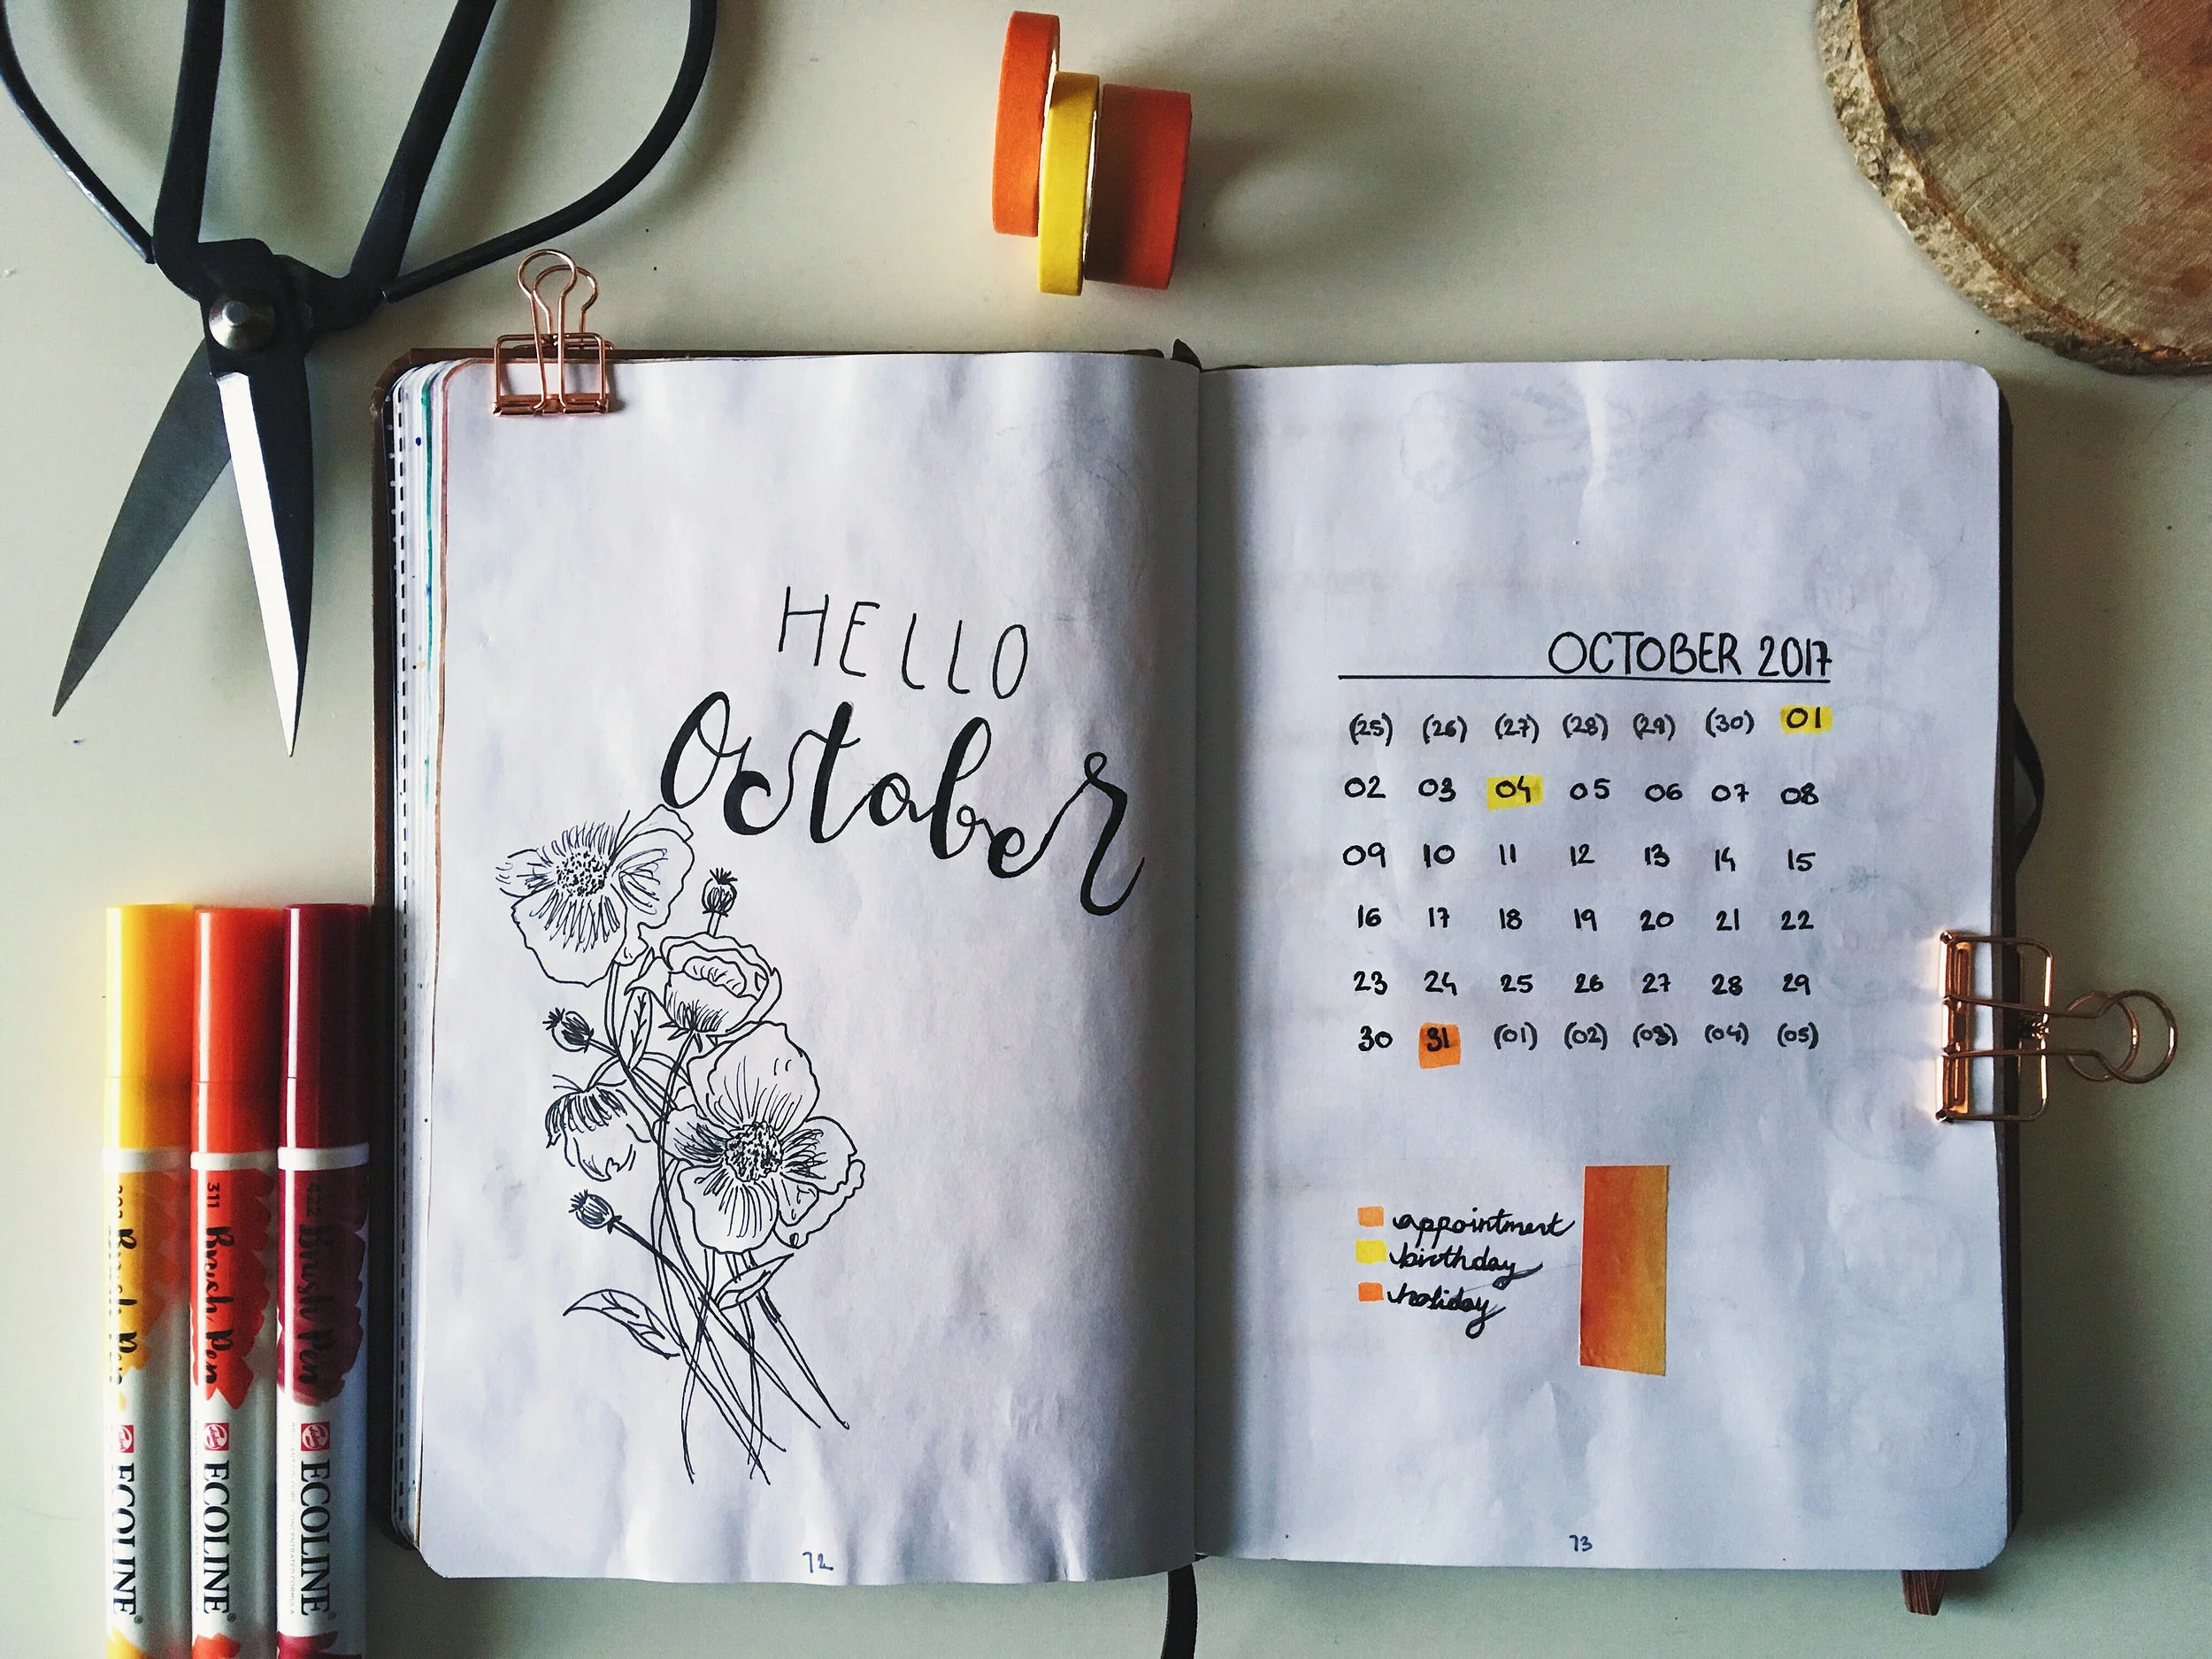 HELLO
October
72
OCTOBER 2017
(25) (26) (27) (28) (29) (30) 01
02 03 04 05 06 07 08
09 10 11 12 13 14 15
16 17 18 19 20 21 22
23 24 25 26 27 28 29
30 31 (01) (02) (03) (04) (05)
appointment
birthday
holiday
73
Brush Pen
ECOLINE®
311 Brush Pen
ECOLINE®
422 Brush Pen
ECOLINE®